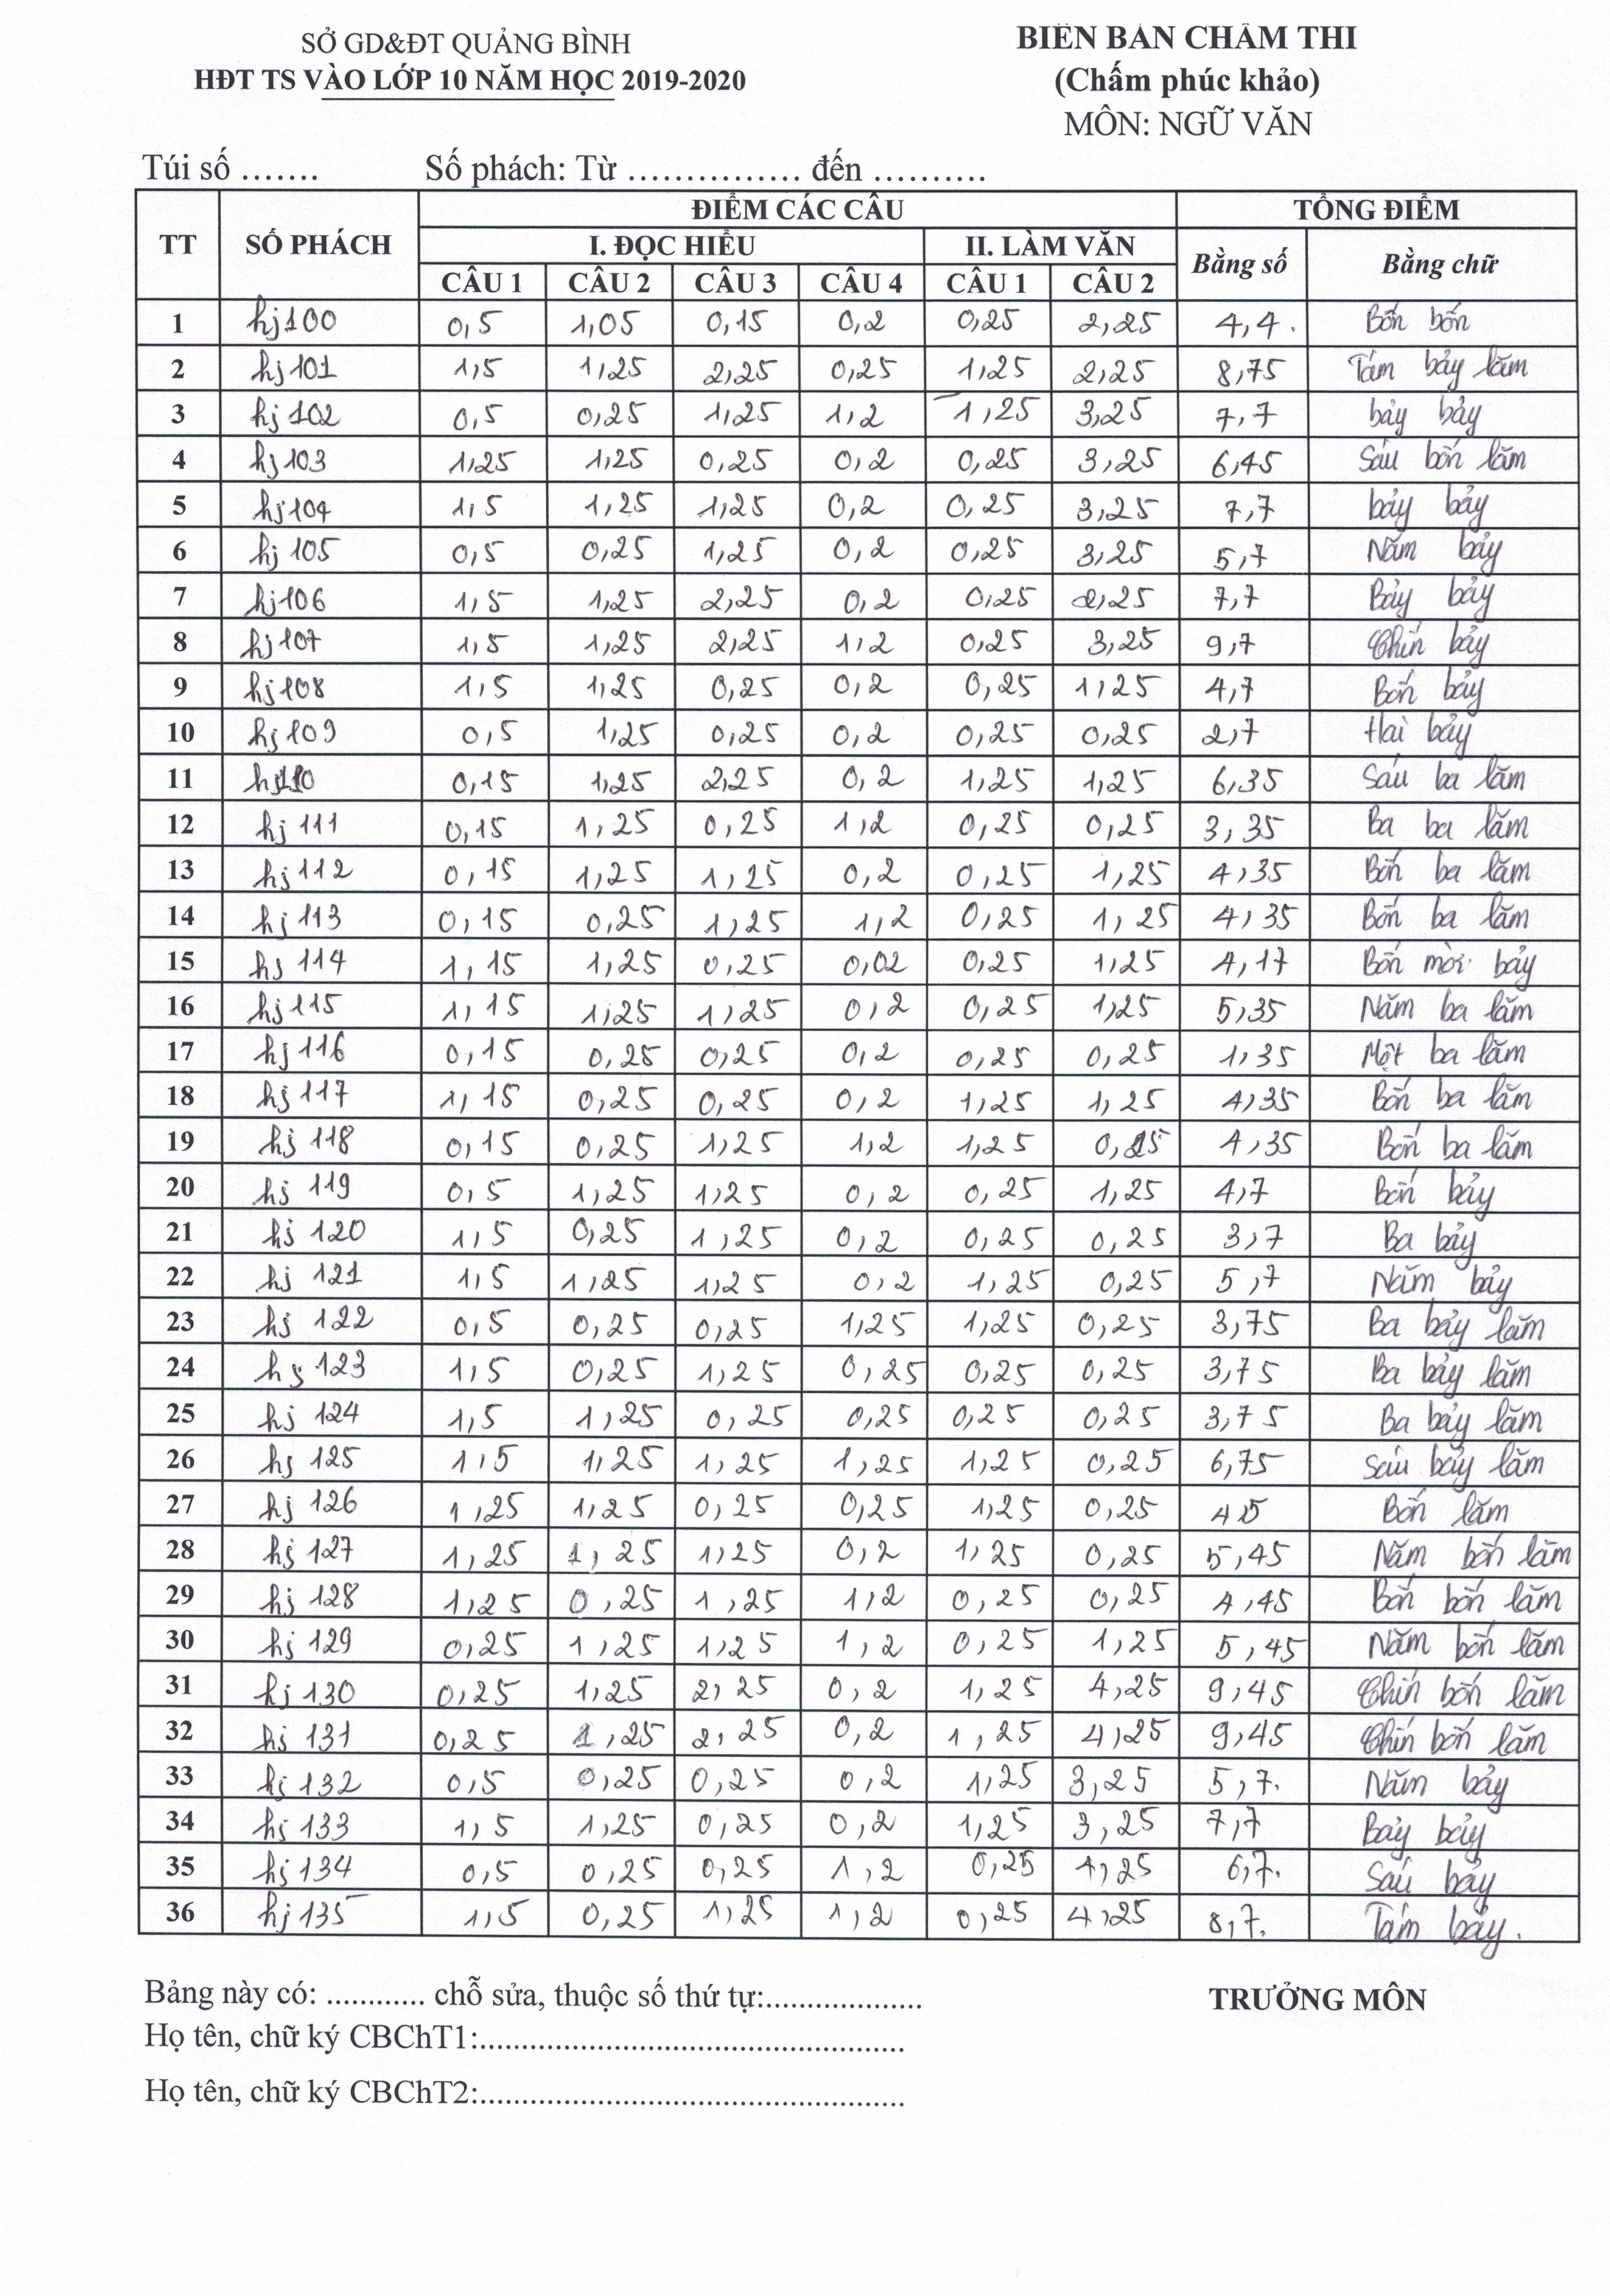 SỞ GD&ĐT QUẢNG BÌNH
HĐT TS VÀO LỚP 10 NĂM HỌC 2019-2020
BIÊN BẢN CHẤM THI
(Chấm phúc khảo)
MÔN: NGỮ VĂN
Túi số ....... Số phách: Từ ............... đến ..........
TT SỐ PHÁCH ĐIỂM CÁC CÂU TỔNG ĐIỂM
I. ĐỌC HIỂU II. LÀM VĂN Bằng số Bằng chữ
CÂU 1 CÂU 2 CÂU 3 CÂU 4 CÂU 1 CÂU 2
1 hj100 0,5 1,05 0,15 0,2 0,25 2,25 4,4. Bốn bốn
2 hj101 1,5 1,25 2,25 0,25 1,25 2,25 8,75 Tám bảy lăm
3 hj102 0,5 0,25 1,25 1,2 1,25 3,25 7,7 bảy bảy
4 hj103 1,25 1,25 0,25 0,2 0,25 3,25 6,45 Sáu bốn lăm
5 hj104 1,5 1,25 1,25 0,2 0,25 3,25 7,7 bảy bảy
6 hj105 0,5 0,25 1,25 0,2 0,25 3,25 5,7 Năm bảy
7 hj106 1,5 1,25 2,25 0,2 0,25 2,25 7,7 Bảy bảy
8 hj107 1,5 1,25 2,25 1,2 0,25 3,25 9,7 Chín bảy
9 hj108 1,5 1,25 0,25 0,2 0,25 1,25 4,7 Bốn bảy
10 hj109 0,5 1,25 0,25 0,2 0,25 0,25 2,7 Hai bảy
11 hj110 0,15 1,25 2,25 0,2 1,25 1,25 6,35 Sáu ba lăm
12 hj111 0,15 1,25 0,25 1,2 0,25 0,25 3,35 Ba ba lăm
13 hj112 0,15 1,25 1,25 0,2 0,25 1,25 4,35 Bốn ba lăm
14 hj113 0,15 0,25 1,25 1,2 0,25 1,25 4,35 Bốn ba lăm
15 hj114 1,15 1,25 0,25 0,02 0,25 1,25 4,17 Bốn mời bảy
16 hj115 1,15 1,25 1,25 0,2 0,25 1,25 5,35 Năm ba lăm
17 hj116 0,15 0,25 0,25 0,2 0,25 0,25 1,35 Một ba lăm
18 hj117 1,15 0,25 0,25 0,2 1,25 1,25 4,35 Bốn ba lăm
19 hj118 0,15 0,25 1,25 1,2 1,25 0,25 4,35 Bốn ba lăm
20 hj119 0,5 1,25 1,25 0,2 0,25 1,25 4,7 Bốn bảy
21 hj120 1,5 0,25 1,25 0,2 0,25 0,25 3,7 Ba bảy
22 hj121 1,5 1,25 1,25 0,2 1,25 0,25 5,7 Năm bảy
23 hj122 0,5 0,25 0,25 1,25 1,25 0,25 3,75 Ba bảy lăm
24 hj123 1,5 0,25 1,25 0,25 0,25 0,25 3,75 Ba bảy lăm
25 hj124 1,5 1,25 0,25 0,25 0,25 0,25 3,75 Ba bảy lăm
26 hj125 1,5 1,25 1,25 1,25 1,25 0,25 6,75 Sáu bảy lăm
27 hj126 1,25 1,25 0,25 0,25 1,25 0,25 4,5 Bốn lăm
28 hj127 1,25 1,25 1,25 0,2 1,25 0,25 5,45 Năm bốn lăm
29 hj128 1,25 0,25 1,25 1,2 0,25 0,25 4,45 Bốn bốn lăm
30 hj129 0,25 1,25 1,25 1,2 0,25 1,25 5,45 Năm bốn lăm
31 hj130 0,25 1,25 2,25 0,2 1,25 4,25 9,45 Chín bốn lăm
32 hj131 0,25 1,25 2,25 0,2 1,25 4,25 9,45 Chín bốn lăm
33 hj132 0,5 0,25 0,25 0,2 1,25 3,25 5,7. Năm bảy
34 hj133 1,5 1,25 0,25 0,2 1,25 3,25 7,7 Bảy bảy
35 hj134 0,5 0,25 0,25 1,2 0,25 4,25 6,7. Sáu bảy
36 hj135 1,5 0,25 1,25 1,2 0,25 4,25 8,7. Tám bảy.
Bảng này có: ............ chỗ sửa, thuộc số thứ tự:...................
TRƯỞNG MÔN
Họ tên, chữ ký CBChT1:....................................................
Họ tên, chữ ký CBChT2:....................................................